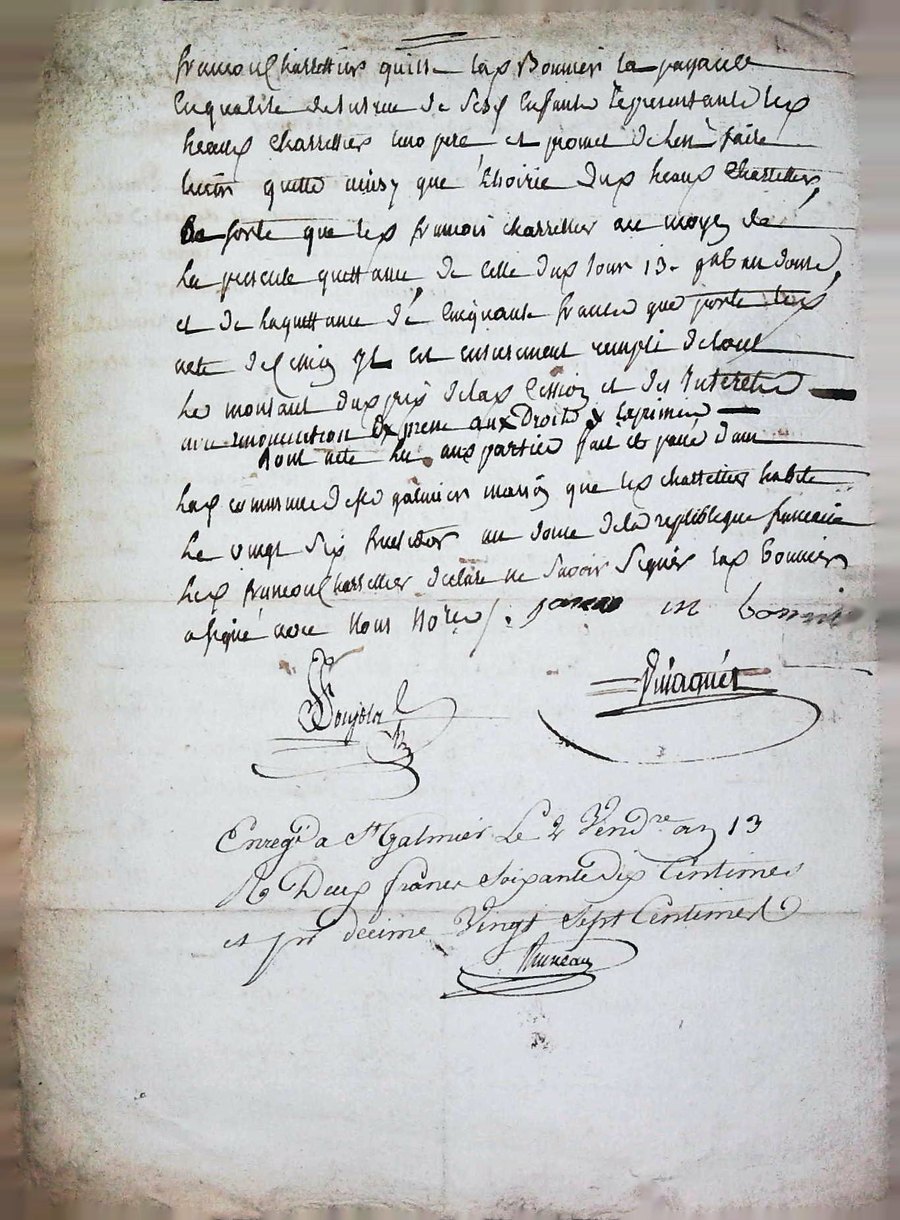 francois Charretier quitte lad Bonnier la payante
En qualité de tutrice de Sesd Enfants representants led
heaux charretier leur pere et promet de len faire
tenir quitte ainsy que l'hoirie dud heaux Charretier
De sorte que led francois charretier au moyen de
La presente quittance de celle dud Jour 13. au douze
et de la quittance de Cinquante francs que porte led
acte de Cession Il est entierement rempli de tout
Le montant du prix de lad Cession et des Interets
avec renonciation Expresse aux Droits
Dont acte Lu aux parties fait et passé dans
Lad commune de st galmier maison que led charretier habite
Le vingt six fructidor an douze de la republique francaise
Led francois Charretier declare ne Savoir Signer lad bonnier
a signé avec Nous Notres /. bonnier
Poujola
Vinagnier
Enregé a St Galmier Le 2 Vendre an 13
R Deux francs Soixante dix Centimes
et pr decime Vingt Sept Centimes